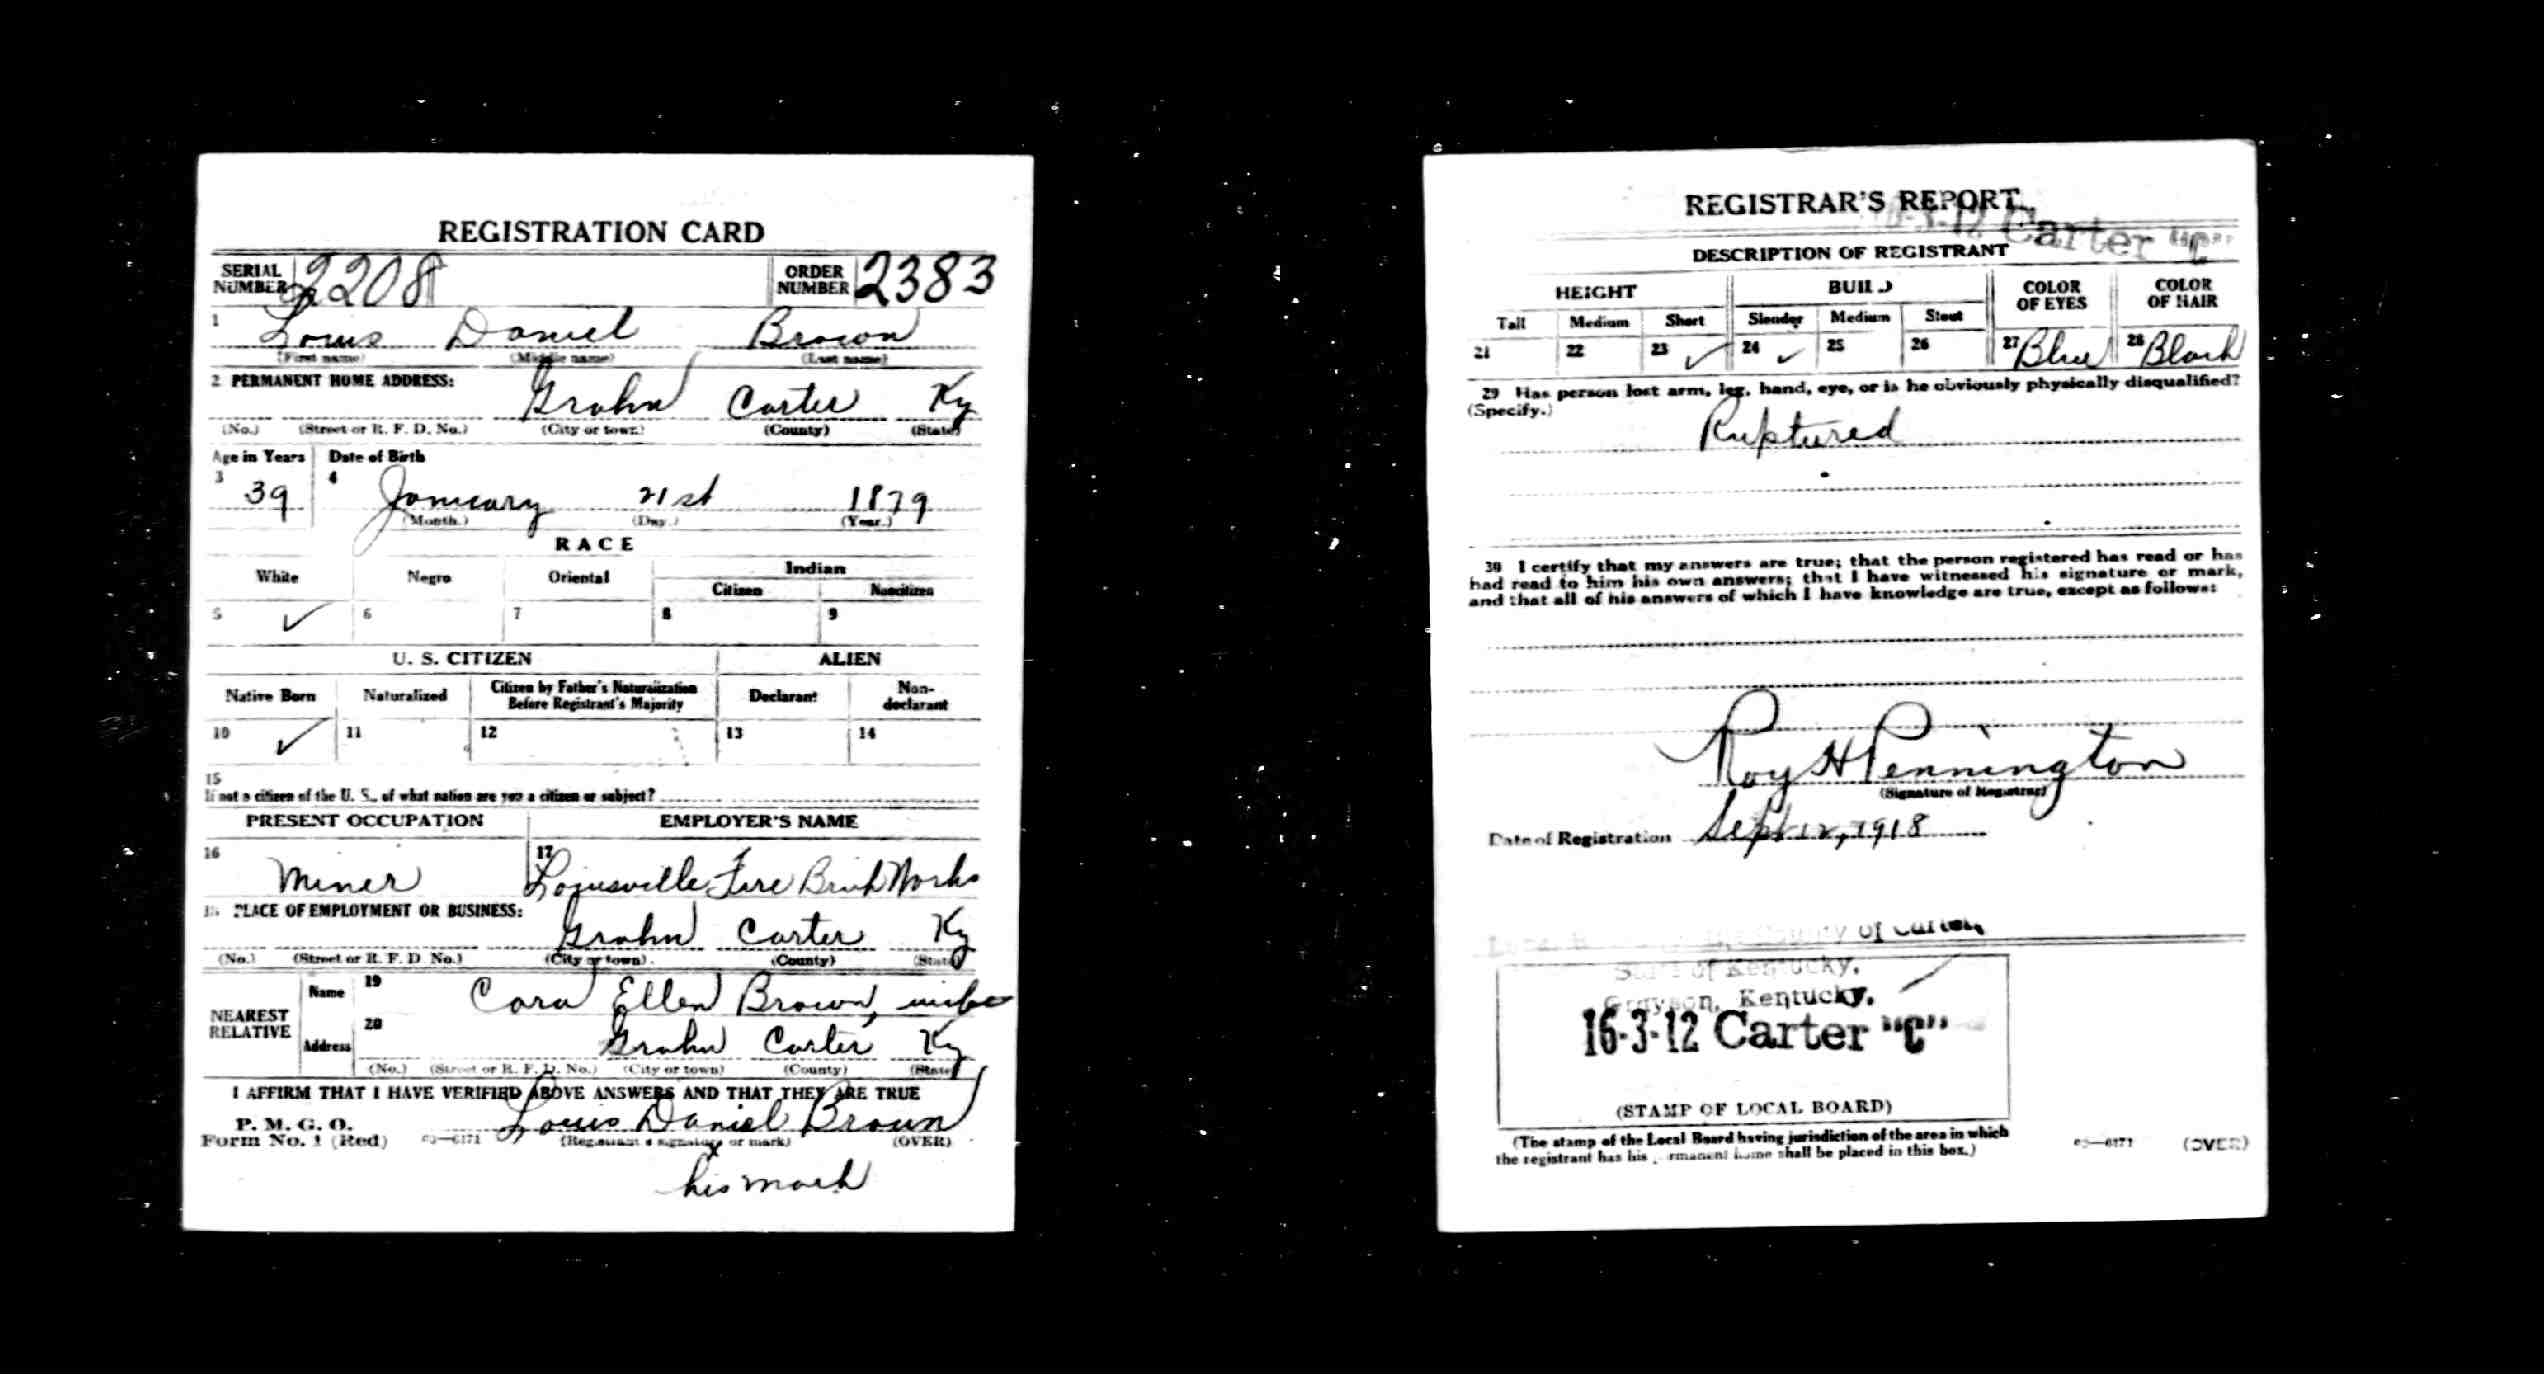 REGISTRATION CARD
SERIAL NUMBER 2208 ORDER NUMBER 2383
1 Louis Daniel Brown
(First name) (Middle name) (Last name)
2 PERMANENT HOME ADDRESS:
Grahn Carter Ky
(No.) (Street or R. F. D. No.) (City or town) (County) (State)
Age in Years Date of Birth
3 39 4 January 21st 1879
(Month.) (Day.) (Year.)
RACE
White Negro Oriental Indian
Citizen Noncitizen
5 ✓ 6 7 8 9
U. S. CITIZEN ALIEN
Native Born Naturalized Citizen by Father's Naturalization Before Registrant's Majority Declarant Non-declarant
10 ✓ 11 12 13 14
15
If not a citizen of the U. S., of what nation are you a citizen or subject?
PRESENT OCCUPATION EMPLOYER'S NAME
16 Miner 17 Louisville Fire Brick Works
18 PLACE OF EMPLOYMENT OR BUSINESS:
Grahn Carter Ky
(No.) (Street or R. F. D. No.) (City or town) (County) (State)
NEAREST RELATIVE
Name 19 Cora Ellen Brown, wife
Address 20 Grahn Carter Ky
(No.) (Street or R. F. D. No.) (City or town) (County) (State)
I AFFIRM THAT I HAVE VERIFIED ABOVE ANSWERS AND THAT THEY ARE TRUE
P. M. G. O.
Form No. 1 (Red) 03—6171 Louis Daniel Brown
(Registrant's signature or mark) (OVER)
x
his mark
REGISTRAR'S REPORT
16-3-12 Carter "C"
DESCRIPTION OF REGISTRANT
HEIGHT BUILD COLOR OF EYES COLOR OF HAIR
Tall Medium Short Slender Medium Stout
21 22 23 ✓ 24 ✓ 25 26 27 Blue 28 Black
29 Has person lost arm, leg, hand, eye, or is he obviously physically disqualified?
(Specify.)
Ruptured
30 I certify that my answers are true; that the person registered has read or has
had read to him his own answers; that I have witnessed his signature or mark,
and that all of his answers of which I have knowledge are true, except as follows:
Roy H Pennington
(Signature of Registrar)
Date of Registration Sept 12, 1918
County of Carter,
State of Kentucky,
Grayson, Kentucky,
16-3-12 Carter "C"
(STAMP OF LOCAL BOARD)
(The stamp of the Local Board having jurisdiction of the area in which
the registrant has his permanent home shall be placed in this box.)
03—6171 (OVER)